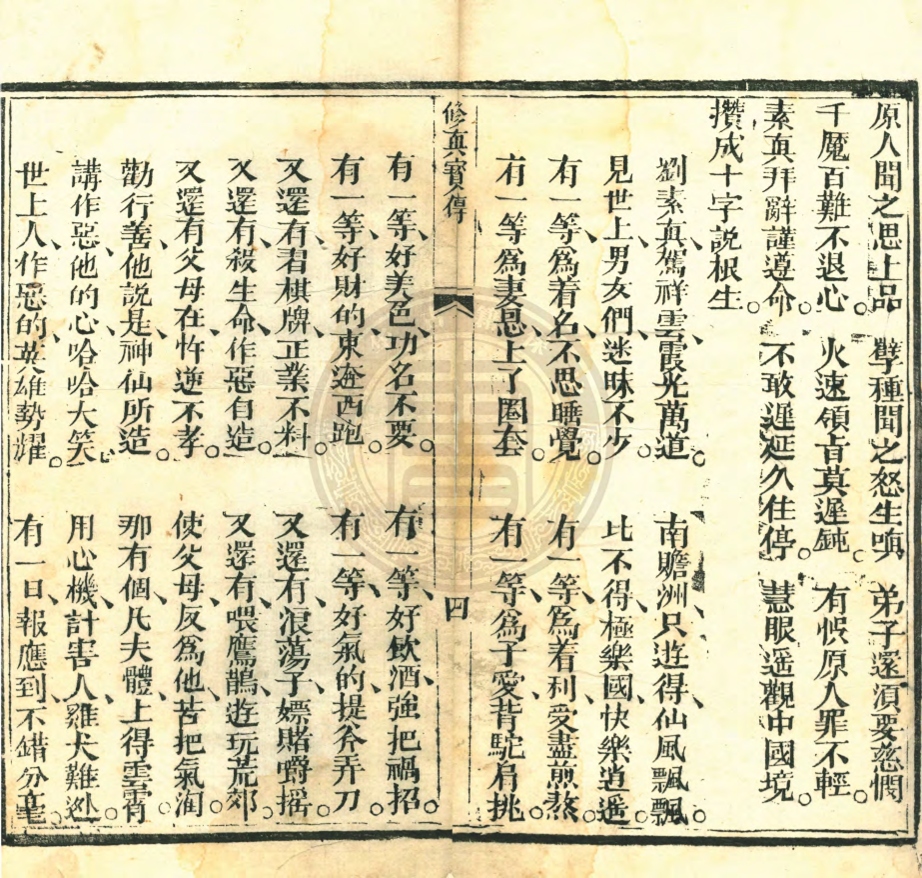 原人聞之思上品 孽種聞之怒生嗔 弟子還須要慈憫
千魔百難不退心 火速領旨莫遲鈍 有悞原人罪不輕
素真拜辭謹遵命 不敢遲延久住停 慧眼遥觀中國境
攢成十字説根生
劉素真駕祥雲霞光萬道 南贍洲只遊得仙風飄飄
見世上男女們迷昧不少 比不得極樂國快樂逍遥
有一等為着名不思睡覺 有一等為着利受盡煎熬
有一等為妻恩上了圈套 有一等為子愛背駝肩挑
修真寳傳 四
有一等好美色功名不要 有一等好飲酒強把禍招
有一等好財的東逩西跑 有一等好氣的提斧弄刀
又還有着棋牌正業不料 又還有浪蕩子嫖賭嚼摇
又還有殺生命作惡自造 又還有喂鷹鵲遊玩荒郊
又還有父母在忤逆不孝 使父母反為他苦把氣淘
勸行善他説是神仙所造 那有個凡夫體上得雲霄
講作惡他的心哈哈大笑 用心機計害人雞犬難逃
世上人作惡的英雄勢耀 有一日報應到不錯分毫